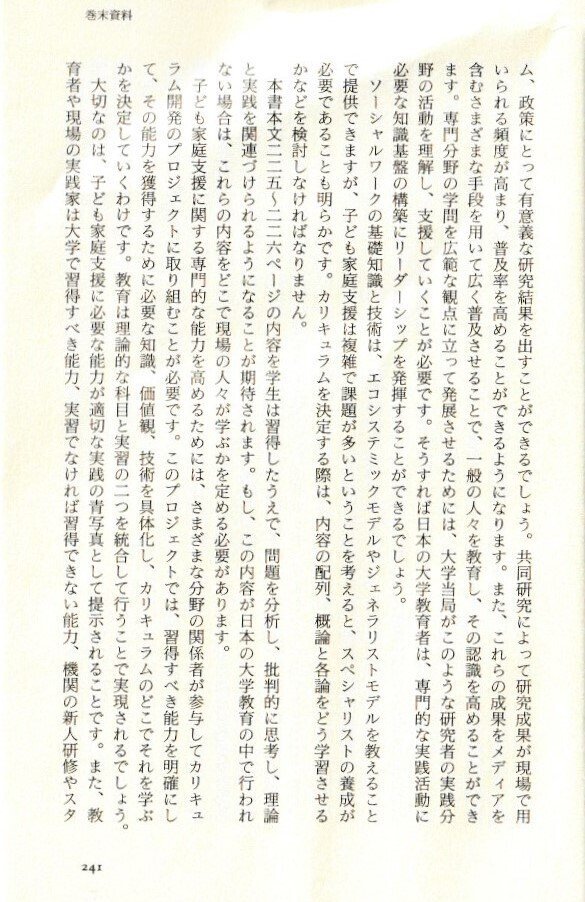 巻末資料
ム、政策にとって有意義な研究結果を出すことができるでしょう。共同研究によって研究成果が現場で用
いられる頻度が高まり、普及率を高めることができるようになります。また、これらの成果をメディアを
含むさまざまな手段を用いて広く普及させることで、一般の人々を教育し、その認識を高めることができ
ます。専門分野の学問を広範な観点に立って発展させるためには、大学当局がこのような研究者の実践分
野の活動を理解し、支援していくことが必要です。そうすれば日本の大学教育者は、専門的な実践活動に
必要な知識基盤の構築にリーダーシップを発揮することができるでしょう。
ソーシャルワークの基礎知識と技術は、エコシステミックモデルやジェネラリストモデルを教えること
で提供できますが、子ども家庭支援は複雑で課題が多いということを考えると、スペシャリストの養成が
必要であることも明らかです。カリキュラムを決定する際は、内容の配列、概論と各論をどう学習させる
かなどを検討しなければなりません。
本書本文二二五〜二二六ページの内容を学生は習得したうえで、問題を分析し、批判的に思考し、理論
と実践を関連づけられるようになることが期待されます。もし、この内容が日本の大学教育の中で行われ
ない場合は、これらの内容をどこで現場の人々が学ぶかを定める必要があります。
子ども家庭支援に関する専門的な能力を高めるためには、さまざまな分野の関係者が参与してカリキュ
ラム開発のプロジェクトに取り組むことが必要です。このプロジェクトでは、習得すべき能力を明確にし
て、その能力を獲得するために必要な知識、価値観、技術を具体化し、カリキュラムのどこでそれを学ぶ
かを決定していくわけです。教育は理論的な科目と実習の二つを統合して行うことで実現されるでしょう。
大切なのは、子ども家庭支援に必要な能力が適切な実践の青写真として提示されることです。また、教
育者や現場の実践家は大学で習得すべき能力、実習でなければ習得できない能力、機関の新人研修やスタ
241